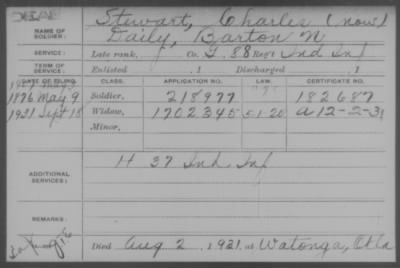 Stewart, Charles (now)
NAME OF SOLDIER: Daily, Barton N
SERVICE: Late rank, Co. G, 88 Reg't Ind Inf
TERM OF SERVICE: Enlisted , 1 Discharged , 1
DATE OF FILING. CLASS. APPLICATION NO. LAW. CERTIFICATE NO.
1876 May 9 Soldier, 218977 182687
1921 Sept 15 Widow, 1702345 5-1-20 A 12-2-31
Minor,
ADDITIONAL SERVICES: H 37 Ind Inf
REMARKS:
Died Aug 2, 1921, at Watonga, Okla